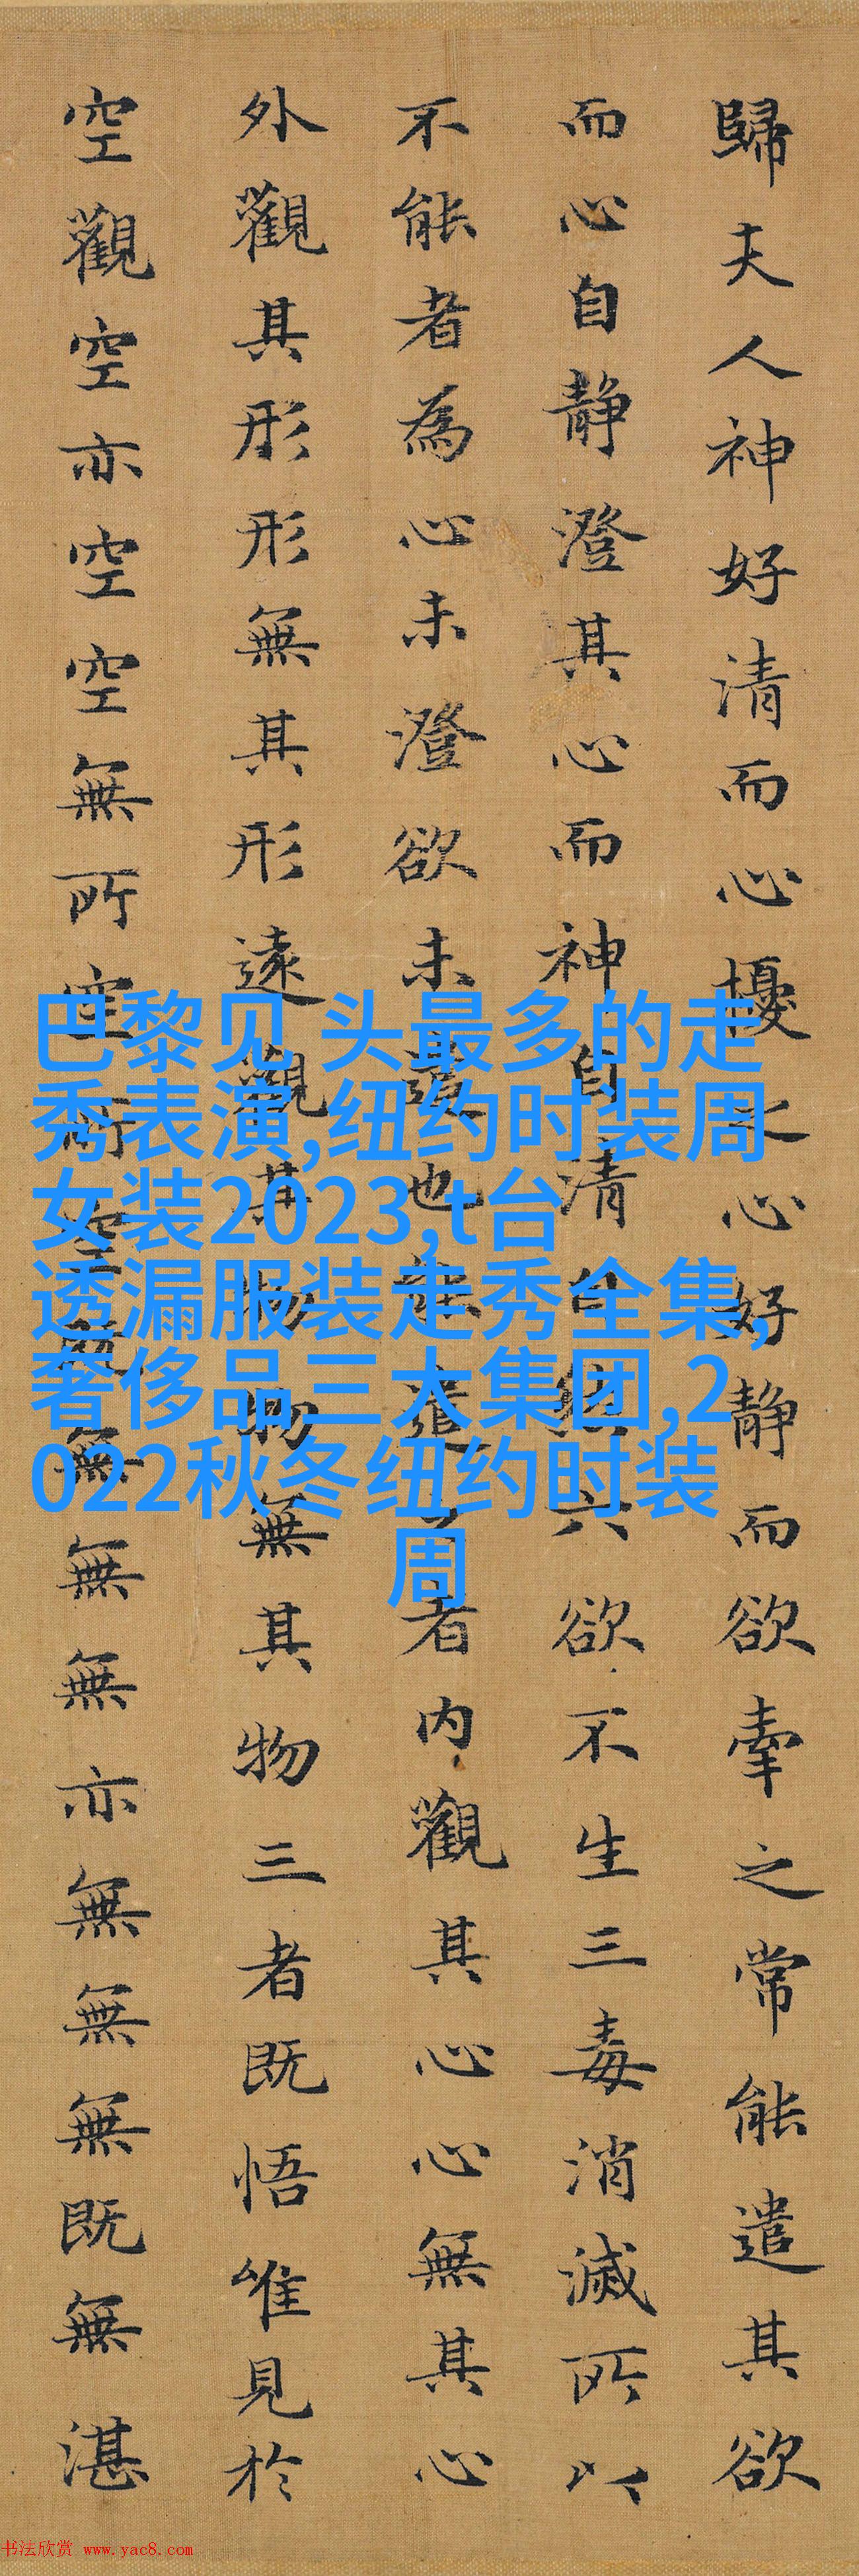 歸夫人神好清而心擾之心好静而欲牽之常能遣其欲
而心自静澄其心而神自清自然六欲不生三毒消滅所以
不能者為心未澄欲未遣也能遣之者内觀其心心無其心
外觀其形形無其形遠觀其物物無其物三者既悟唯見於
空觀空亦空空無所空所空既無無無亦無無無既無湛
巴黎见 头最多的走
秀表演,纽约时装周
女装2023,t台
透漏服装走秀全集,
奢侈品三大集团,2
022秋冬纽约时装
周
书法欣赏 www.yac8.com